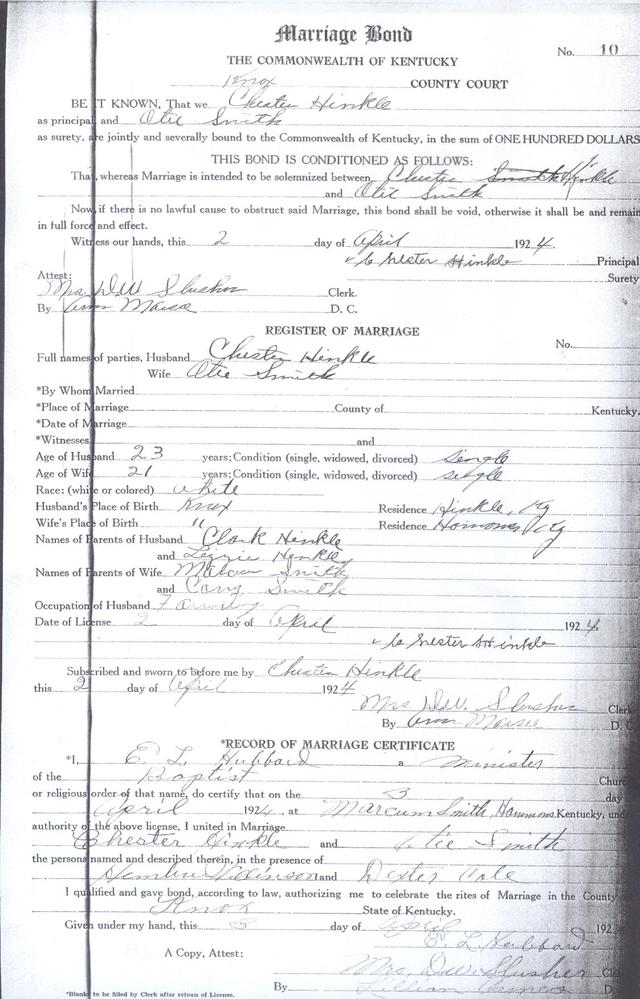 Marriage Bond
No. 10
THE COMMONWEALTH OF KENTUCKY
Knox COUNTY COURT
BE IT KNOWN, That we Chester Hinkle
as principal and Otie Smith
as surety, are jointly and severally bound to the Commonwealth of Kentucky, in the sum of ONE HUNDRED DOLLARS
THIS BOND IS CONDITIONED AS FOLLOWS:
That, whereas Marriage is intended to be solemnized between Chester Smith Hinkle
and Otie Smith
Now, if there is no lawful cause to obstruct said Marriage, this bond shall be void, otherwise it shall be and remain
in full force and effect.
Witness our hands, this 2 day of April 1924.
Chester Hinkle Principal
Surety
Attest:
Mrs. D. W. Slusher Clerk.
By Ann D. C.
REGISTER OF MARRIAGE
No.
Full names of parties, Husband Chester Hinkle
Wife Otie Smith
*By Whom Married
*Place of Marriage County of Kentucky.
*Date of Marriage
*Witnesses and
Age of Husband 23 years; Condition (single, widowed, divorced) single
Age of Wife 21 years; Condition (single, widowed, divorced) single
Race: (white or colored) white
Husband's Place of Birth Knox Residence Hinkle, Ky
Wife's Place of Birth " Residence Hammons, Ky
Names of Parents of Husband Clark Hinkle
and Lizzie Hinkle
Names of Parents of Wife Marcum Smith
and Smith
Occupation of Husband Farming
Date of License 2 day of April 1924.
Chester Hinkle
Subscribed and sworn to before me by Chester Hinkle
this 2 day of April 1924
Mrs D.W. Slusher Clerk
By Ann D. C.
*RECORD OF MARRIAGE CERTIFICATE
*I, E. L. Hubbard a Minister
of the Baptist Church
or religious order of that name, do certify that on the 3 day
April 1924, at Marcum Smith, Hammons Kentucky, und
authority of the above license, I united in Marriage
Chester Hinkle and Otie Smith
the persons named and described therein, in the presence of
and Dexter Cole
I qualified and gave bond, according to law, authorizing me to celebrate the rites of Marriage in the County
Knox State of Kentucky.
Given under my hand, this day of April 192
E L Hubbard
A Copy, Attest:
Mrs. D.W. Slusher Cl
By Lillian D.
*Blanks to be filled by Clerk after return of License.